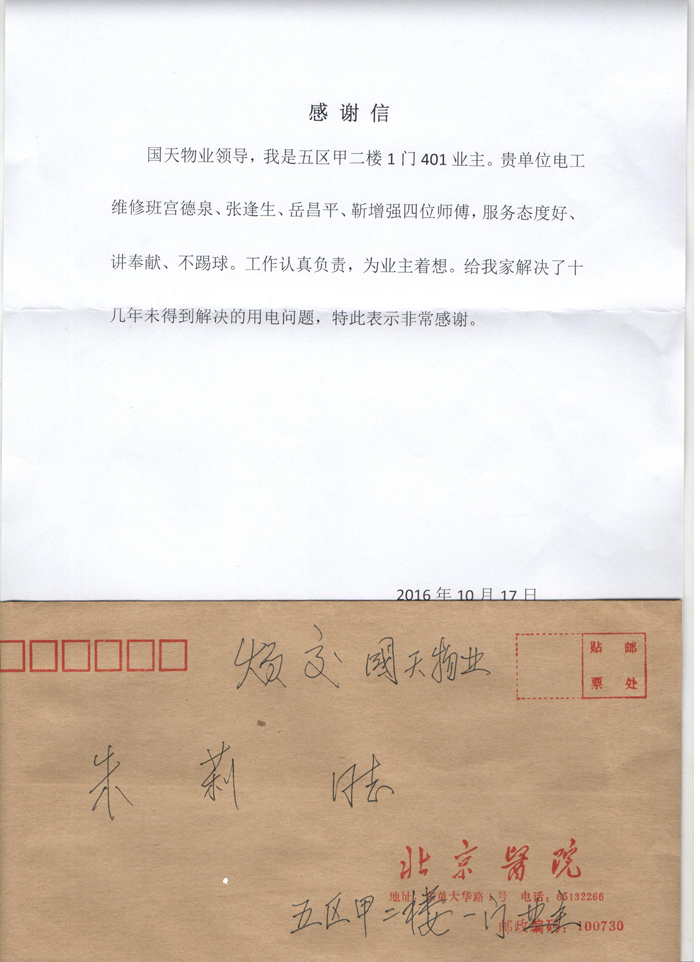 感谢信
国天物业领导，我是五区甲二楼1门401业主。贵单位电工
维修班宫德泉、张逢生、岳昌平、靳增强四位师傅，服务态度好、
讲奉献、不踢球。工作认真负责，为业主着想。给我家解决了十
几年未得到解决的用电问题，特此表示非常感谢。
2016年10月17日
烦交 國天物业
贴 邮
票 处
朱莉 同志
北京醫院
地址：大华路1号 电话：65132266
五区甲二楼一门业主
邮政编码：100730